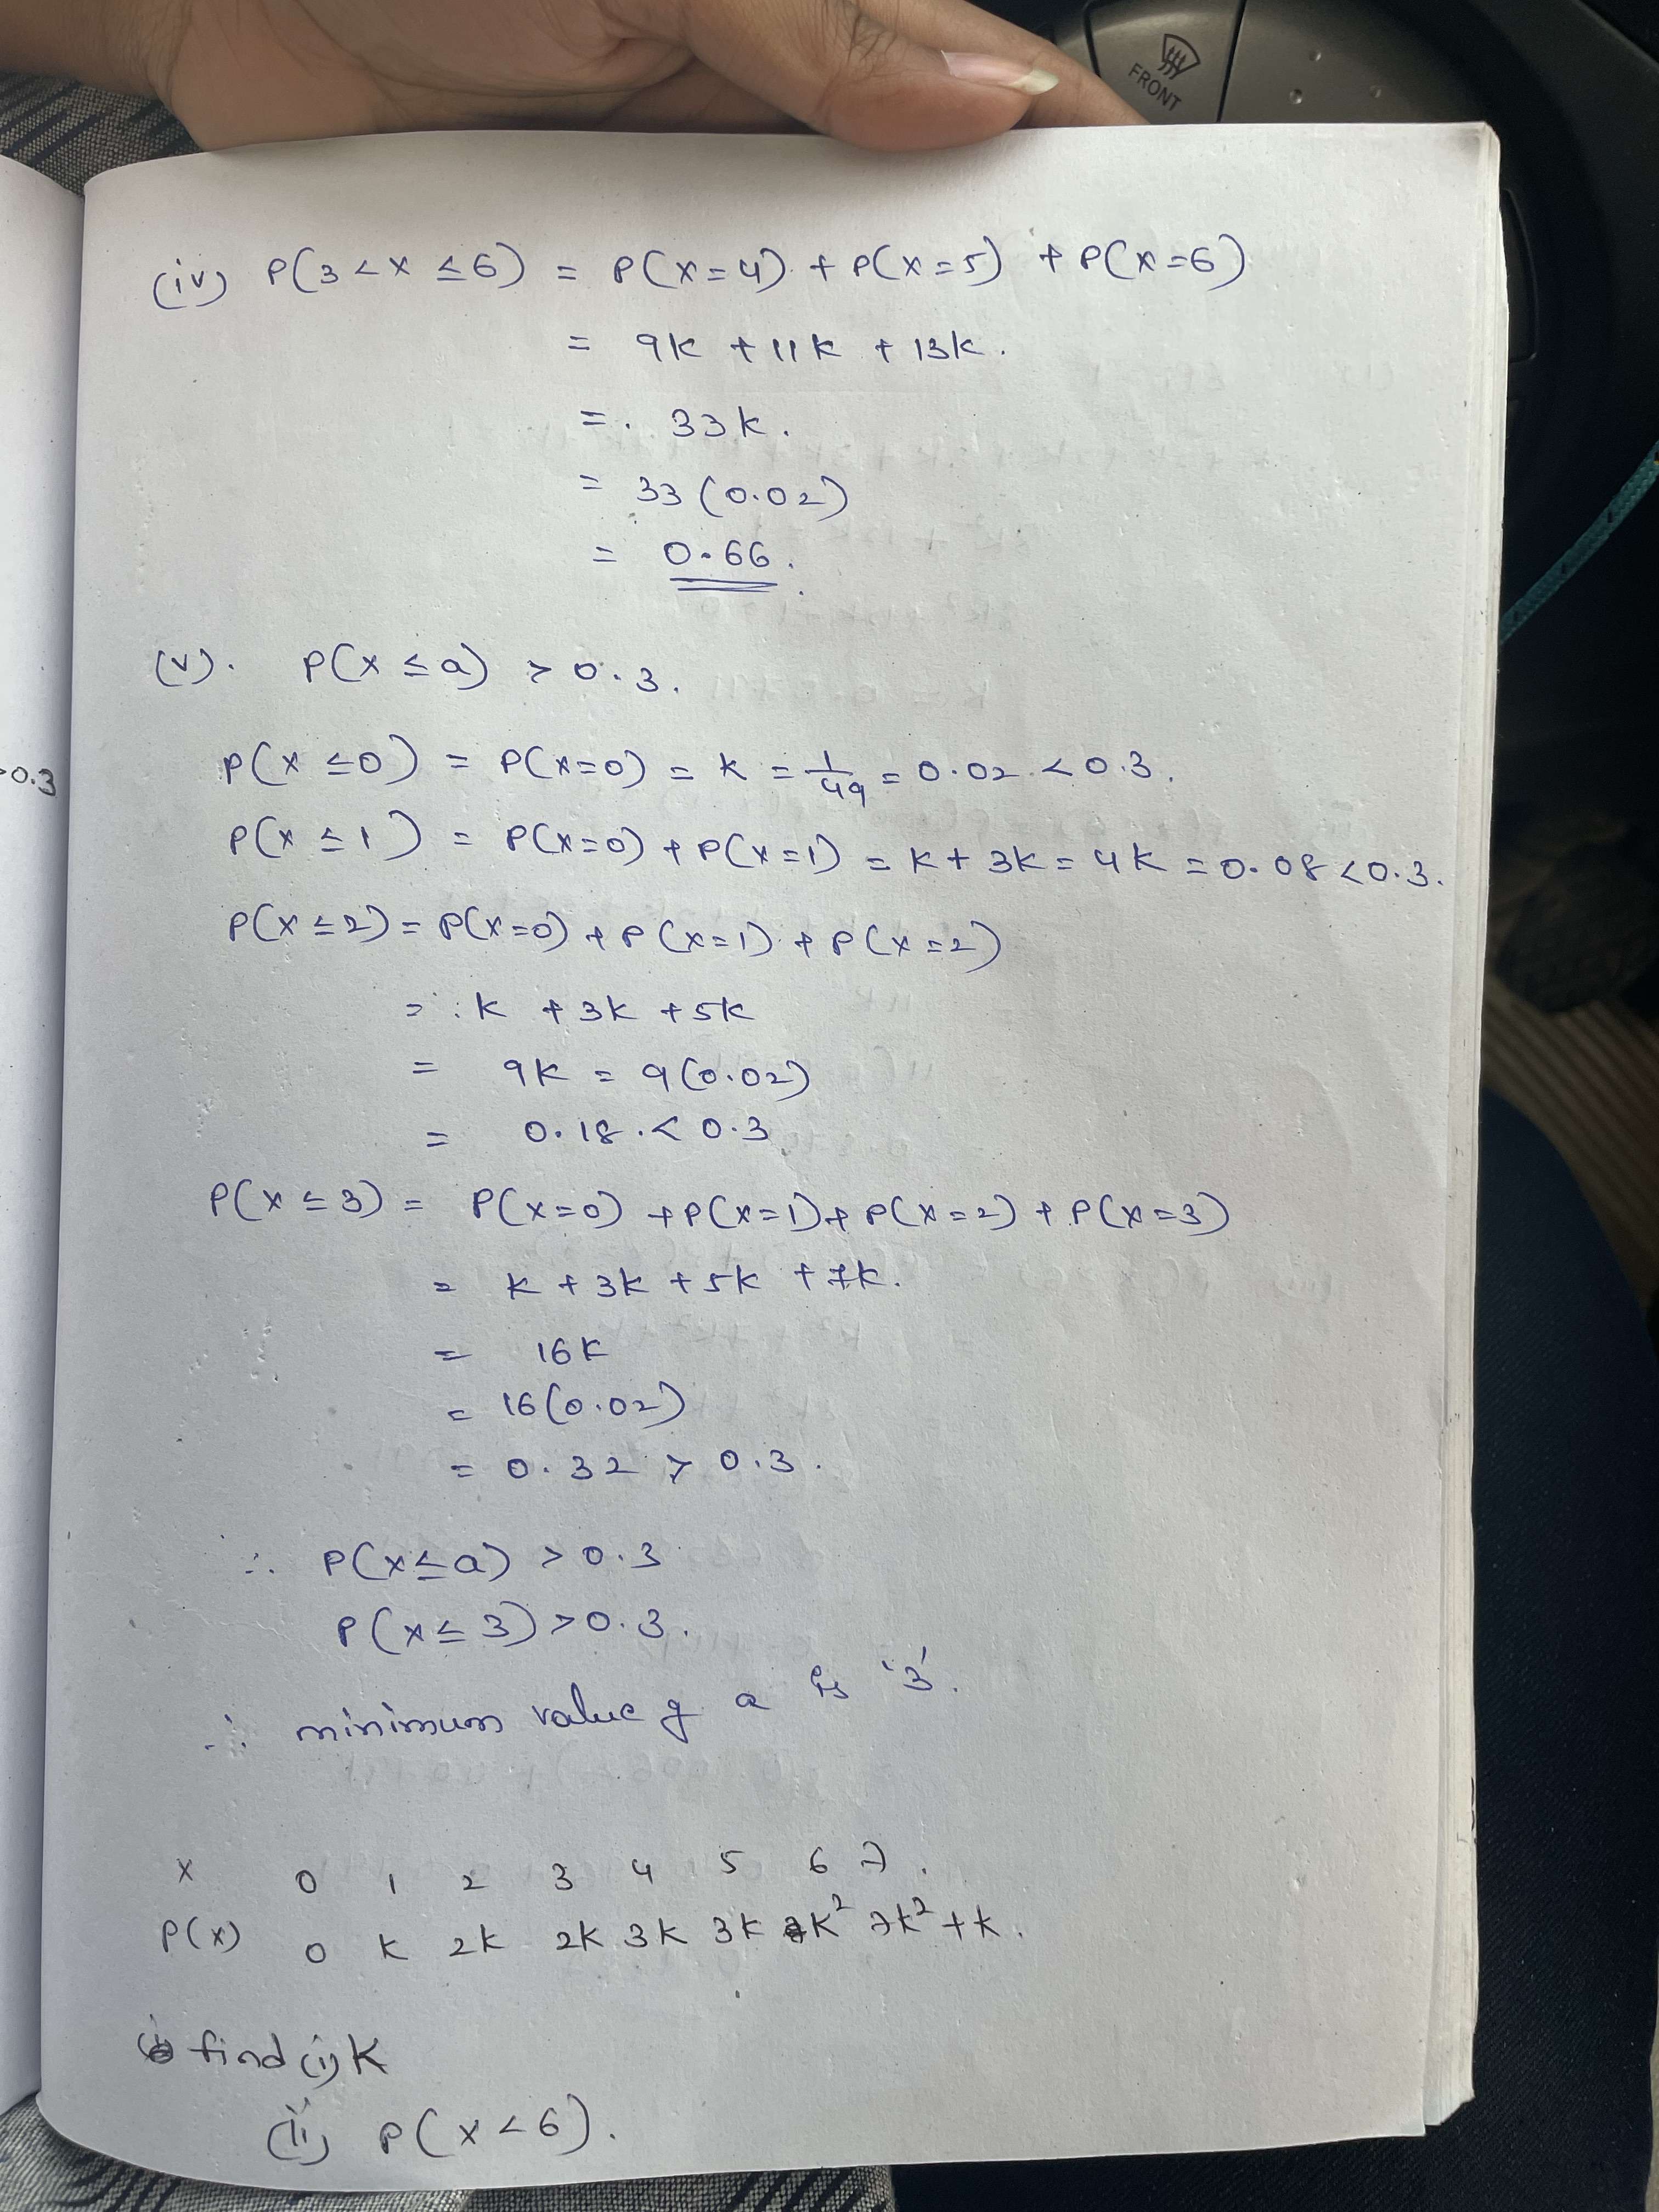 FRONT
(iv) P(3 < x ≤ 6) = P(x=4) + P(x=5) + P(x=6)
= 9k + 11k + 13k.
= 33k.
= 33(0.02)
= 0.66.
(v). P(x ≤ a) > 0.3.
0.3
P(x ≤ 0) = P(x=0) = k = 1/49 = 0.02 < 0.3.
P(x ≤ 1) = P(x=0) + P(x=1) = k + 3k = 4k = 0.08 < 0.3.
P(x ≤ 2) = P(x=0) + P(x=1) + P(x=2)
= k + 3k + 5k
= 9k = 9(0.02)
= 0.18 < 0.3
P(x ≤ 3) = P(x=0) + P(x=1) + P(x=2) + P(x=3)
= k + 3k + 5k + 7k.
= 16k
= 16(0.02)
= 0.32 > 0.3.
∴ P(x ≤ a) > 0.3
P(x ≤ 3) > 0.3.
∴ minimum value of a is '3'.
x 0 1 2 3 4 5 6 7.
P(x) 0 k 2k 2k 3k 3k k² 7k²+k.
find (i) k
(ii) P(x < 6).